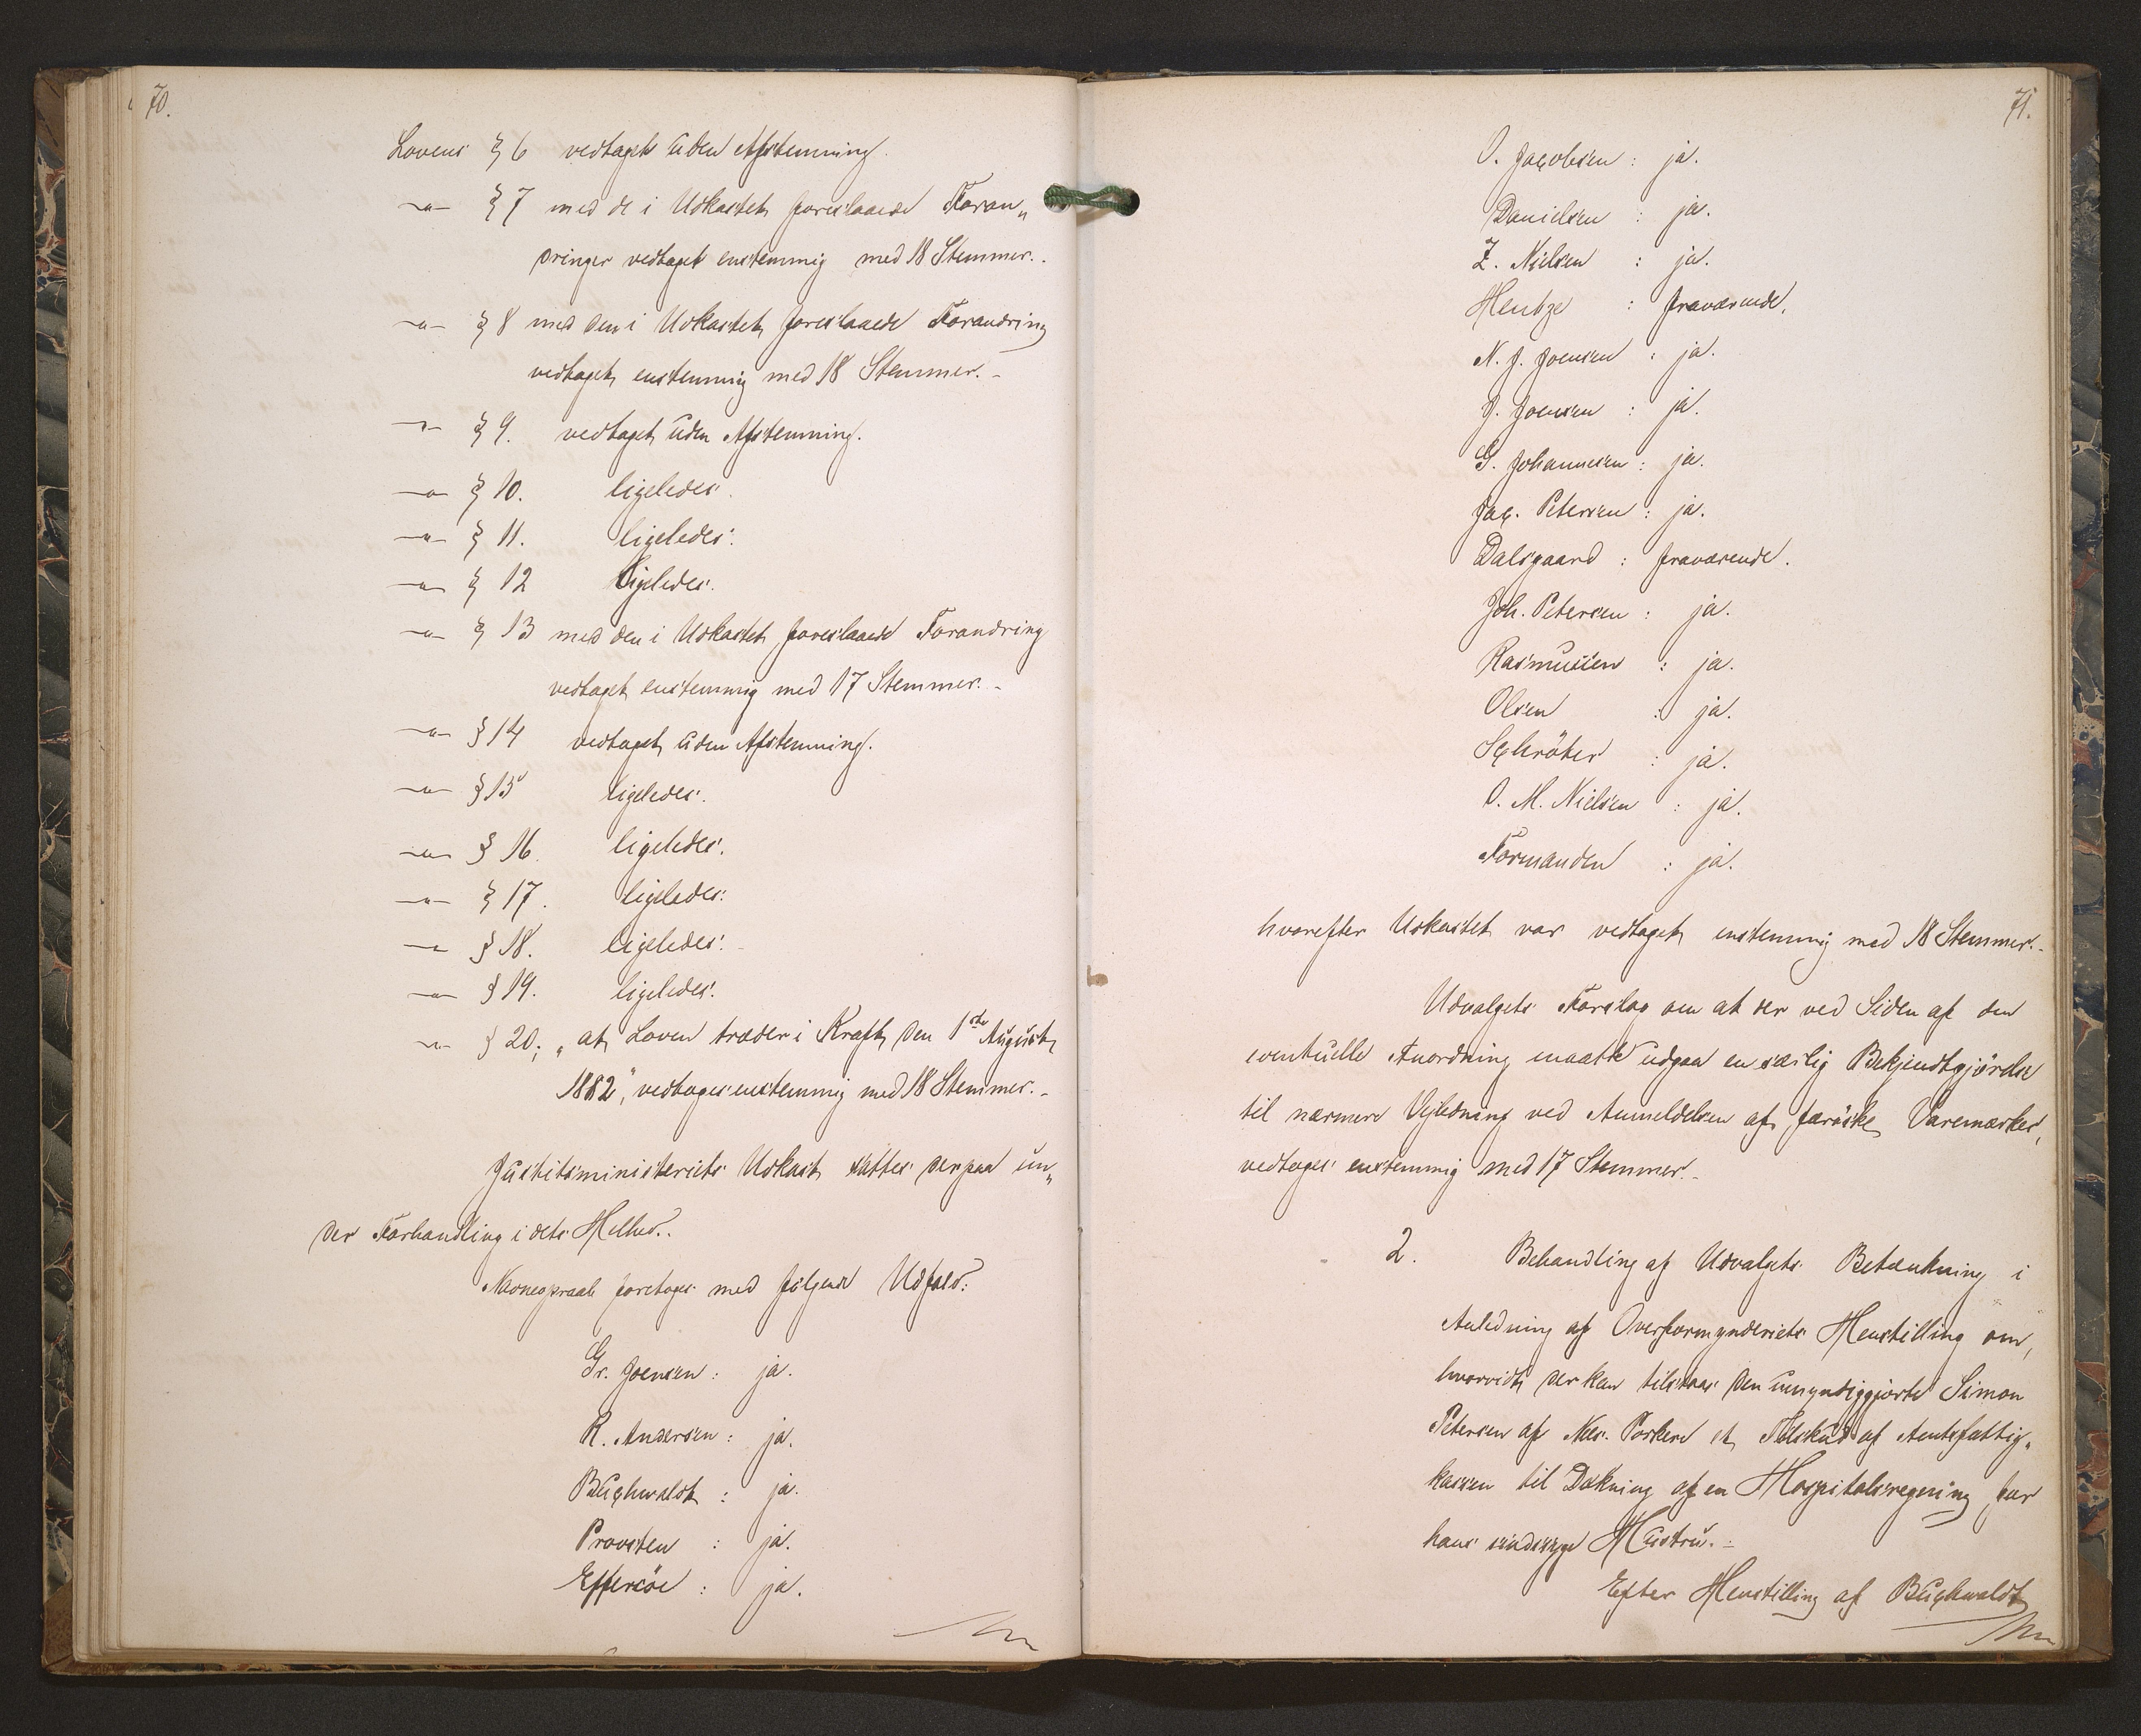 70.
Lovens § 6 vedtaget uden Afstemning.
-"- § 7 med de i Udkastet foreslaaede Foran„
dringer vedtaget enstemmig med 18 Stemmer.
-"- § 8 med den i Udkastet foreslaaede Forandring
vedtaget enstemmig med 18 Stemmer.-
-"- § 9. vedtaget uden Afstemning.
-"- § 10. ligeledes.
-"- § 11. ligeledes.
-"- § 12 ligeledes.
-"- § 13 med den i Udkastet foreslaaede Forandring
vedtaget enstemmig med 17 Stemmer.-
-"- § 14 vedtaget uden Afstemning.
-"- § 15 ligeledes.
-"- § 16. ligeledes.
-"- § 17. ligeledes.
-"- § 18. ligeledes.-
-"- § 19. ligeledes.
-"- § 20; „at Loven træder i Kraft den 1ste August
1882", vedtages enstemmig med 18 Stemmer.-
Justitsministeriets Udkast sattes derpaa un„
der Forhandling i dets Helhed.
Navneopraab foretoges med følgende Udfald:
Gr. Joensen: ja.
R. Andersen: ja.
Buchwaldt: ja.
Provsten : ja.
Effersöe : ja.
71.
O. Jacobsen: ja.
Danielsen : ja.
Z. Nielsen : ja.
Hentze : fraværende.
N. J. Joensen : ja.
J. Joensen : ja.
G. Johannesen: ja.
Jac. Petersen: ja.
Dalsgaard : fraværende.
Joh. Petersen: ja.
Rasmussen : ja.
Olsen : ja.
Schröter : ja.
O. M. Nielsen : ja.
Formanden : ja.
hvorefter Udkastet var vedtaget enstemmig med 18 Stemmer.-
Udvalgets Forslag om at der ved Siden af den
eventuelle Anordning maatte udgaa en særlig Bekjendtgjörelse
til nærmere Vejledning ved Anmeldelsen af færöske Varemærker,
vedtoges enstemmig med 17 Stemmer.-
2. Behandling af Udvalgets Betænkning i
Anledning af Overformynderiets Henstilling om,
hvorvidt der kan tilstaas den umyndiggjorte Simon
Petersen af Nes. Porkere et Tilskud af Amtsfattig„
kassen til Dækning af en Hospitalsregning for
hans sindssyge Hustru.-
Efter Henstilling af Buchwaldt